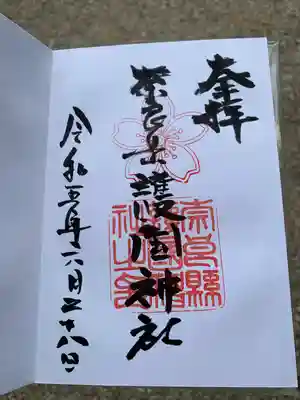 奉拝
奈良県護國神社
奈良縣
護國神
社之印
令和五年六月二十八日